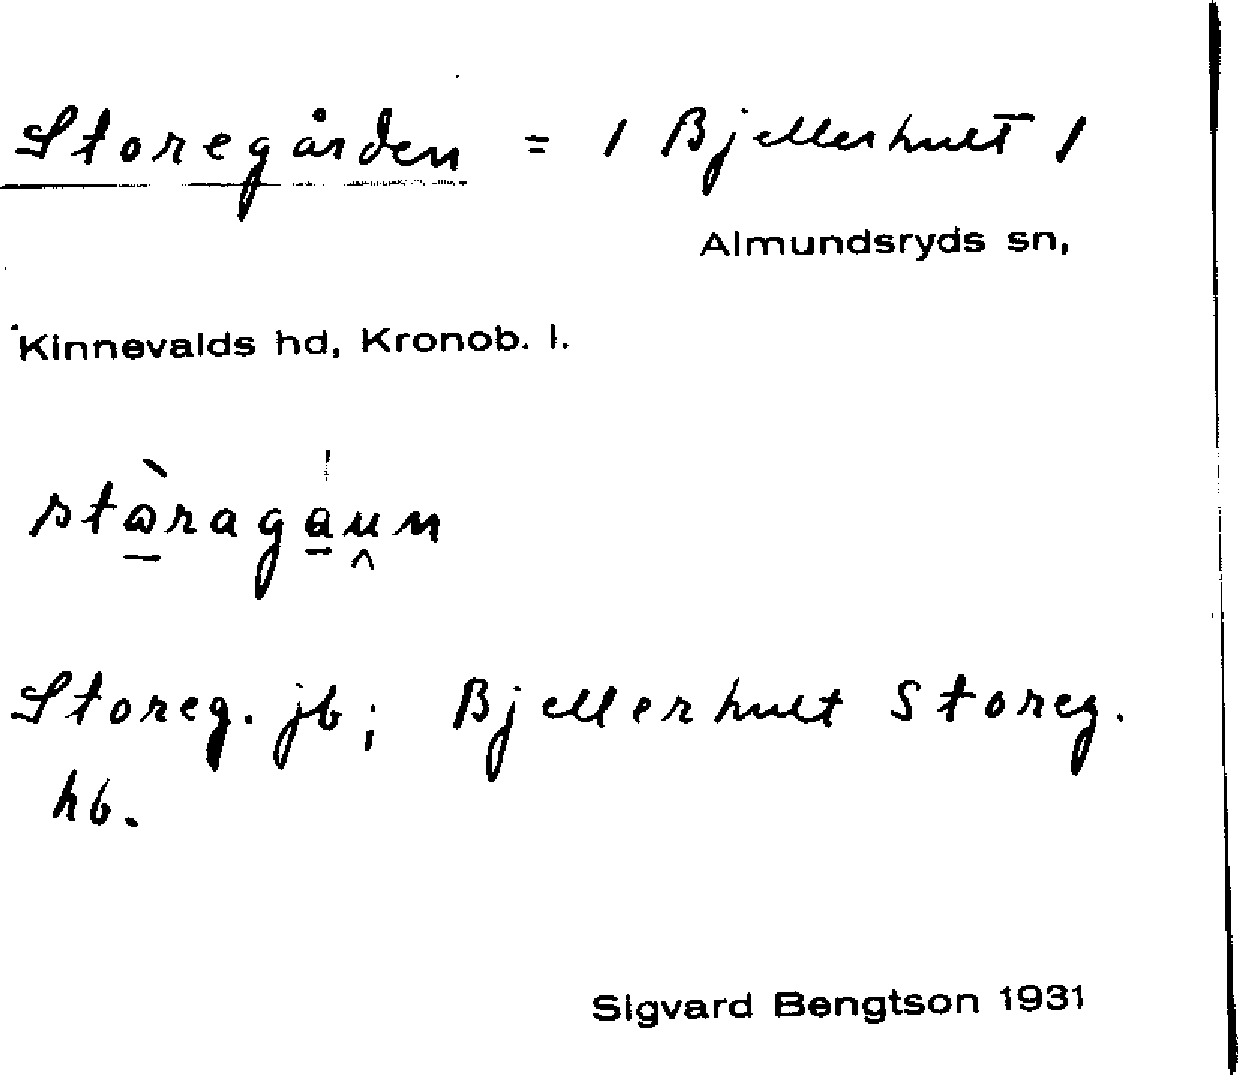 Storegården = 1 Bjellerhult 1
Almundsryds sn,
Kinnevalds hd, Kronob. l.
Storeg. jb; Bjellerhult Storeg.
hb.
Sigvard Bengtson 1931